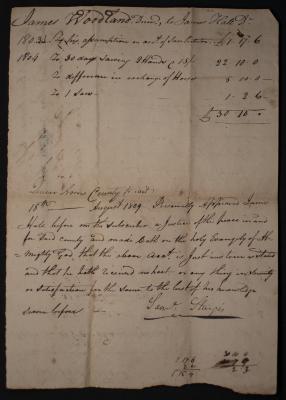 James Woodland Decd, to James Hale Dr
1803 To his assumption on acct of £1 17 6
1804 To 30 days Sawing 2 Hands @ 15/ 22 10 0
To difference in exchange of Horses 5 10 0
To 1 Saw 1 2 6
£ 30 10
Queen Anns County to wit:
18th August 1809 Personally Appeared James
Hale before me the subscriber a Justice of the peace in and
for Said county and made Oath on the holy Evangely of Al-
mighty God that the above Acct. is Just and true as Stated
and that he hath received no part or any thing in Security
or Satisfaction for the same to the best of his knowledge
sworn before
Saml Sturgis